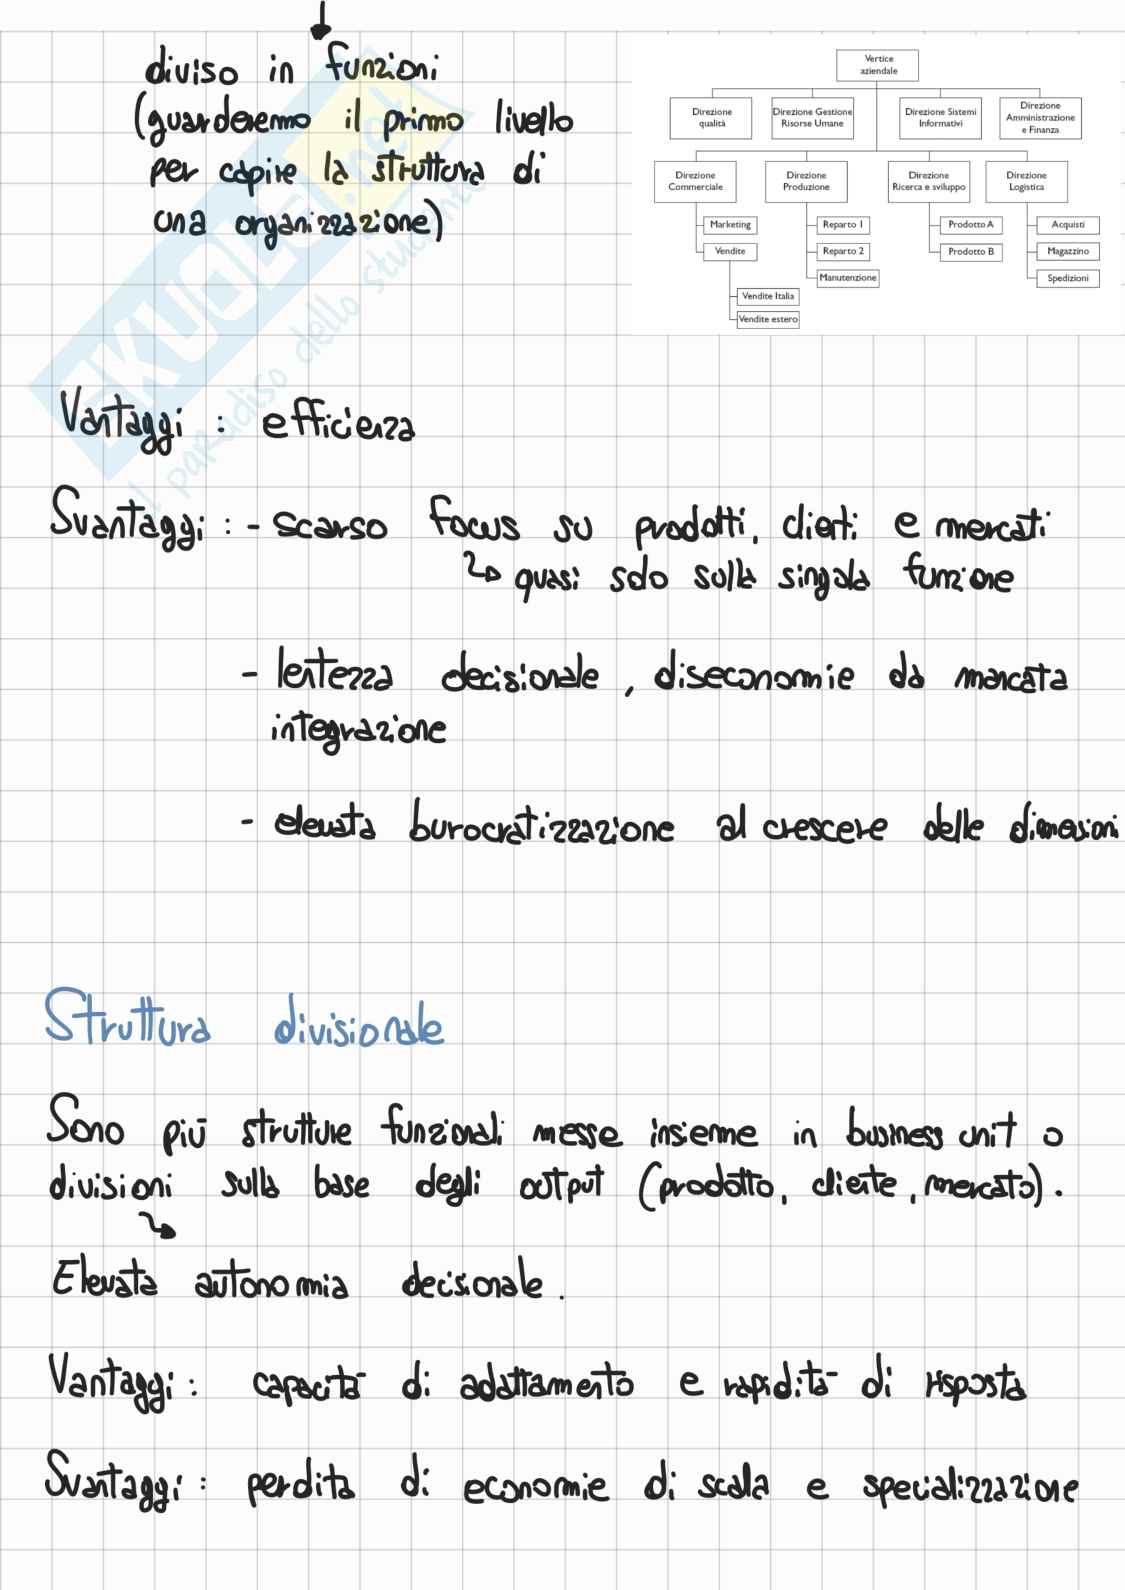 diviso in funzioni
(guarderemo il primo livello
per capire la struttura di
una organizzazione)
Vertice
aziendale
Direzione
qualità
Direzione Gestione
Risorse Umane
Direzione Sistemi
Informativi
Direzione
Amministrazione
e Finanza
Direzione
Commerciale
Direzione
Produzione
Direzione
Ricerca e sviluppo
Direzione
Logistica
Marketing
Reparto 1
Prodotto A
Acquisti
Vendite
Reparto 2
Prodotto B
Magazzino
Manutenzione
Spedizioni
Vendite Italia
Vendite estero
SKUOLA.net
il paradiso dello studente
Vantaggi : efficienza
Svantaggi : - scarso focus su prodotti, clienti e mercati
quasi solo sulla singola funzione
- lentezza decisionale, diseconomie da marcata
integrazione
- elevata burocratizzazione al crescere delle dimensioni
Struttura divisionale
Sono più strutture funzionali messe insieme in business unit o
divisioni sulla base degli output (prodotto, cliente, mercato).
Elevata autonomia decisionale.
Vantaggi: capacità di adattamento e rapidità di risposta
Svantaggi: perdita di economie di scala e specializzazione